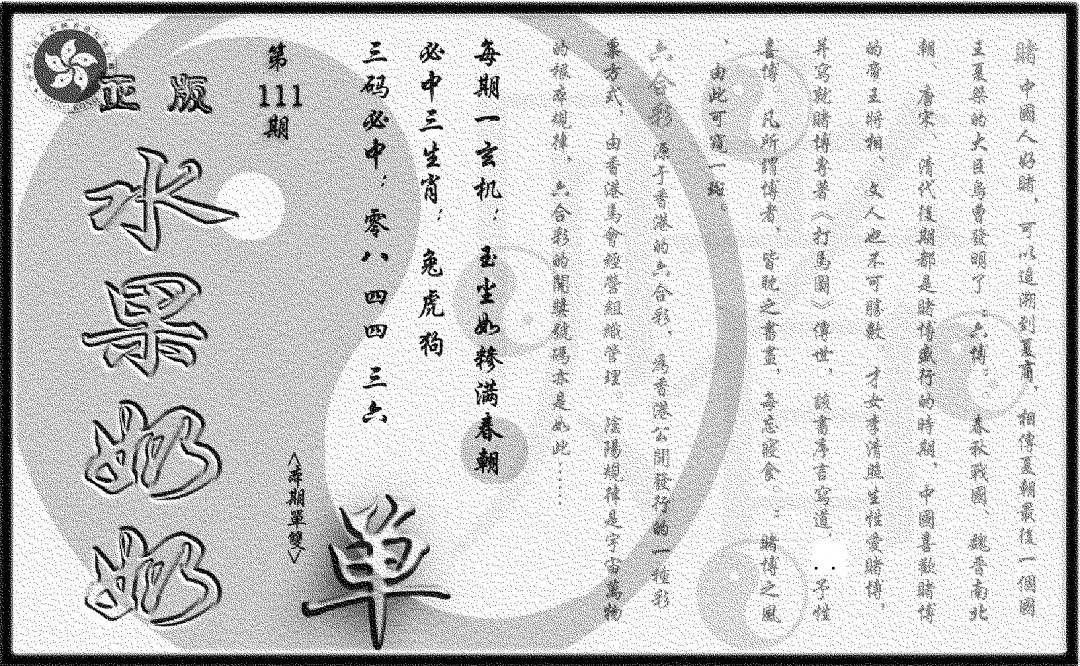 賭中國人好賭，可以追溯到夏商，相傳夏朝最後一個國
王夏桀的大臣烏曹發明了：六博：。春秋戰國、魏晋南北
朝、唐宋、清代後期都是賭博盛行的時期、中國喜歡賭博
的帝王將相、文人也不可勝數 才女李清照生性愛賭博，
并寫就賭博專著《打馬圖》傳世，該書序言寫道，：予性
喜博。凡所謂博者，皆耽之晝晝，每忘寢食。：賭博之風
、由此可窺一斑。
六合彩 源于香港的六合彩、為香港公開發行的一種彩
票方式，由香港馬會經營組織管理。陰陽規律是宇宙萬物
的根本規律，六合彩的開獎號碼亦是如此……
每期一玄机； 玉尘如糁满春朝
必中三生肖； 兔虎狗
三码必中；零八 四四 三六
第
111
期
<本期單雙>
单
正版
水果奶奶